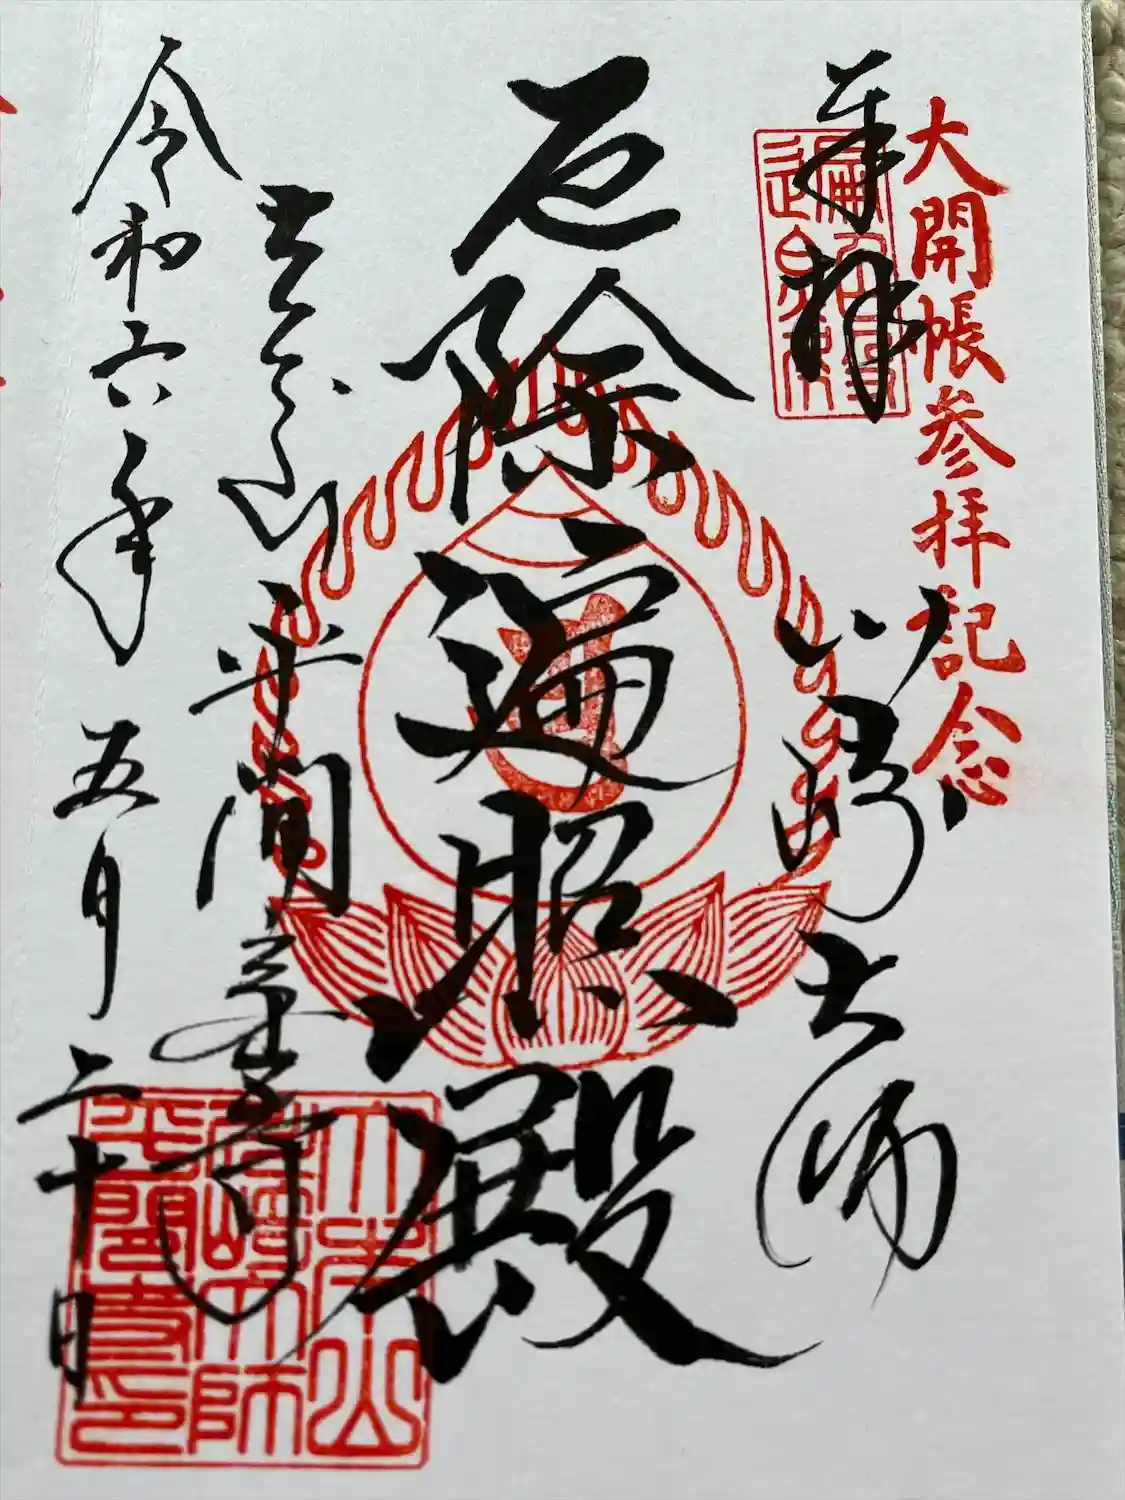 大開帳参拝記念
奉拝
川崎大師
厄除遍照殿
大本山
川崎大師
平間寺印
金剛山
平間寺
令和六年
五月二十日